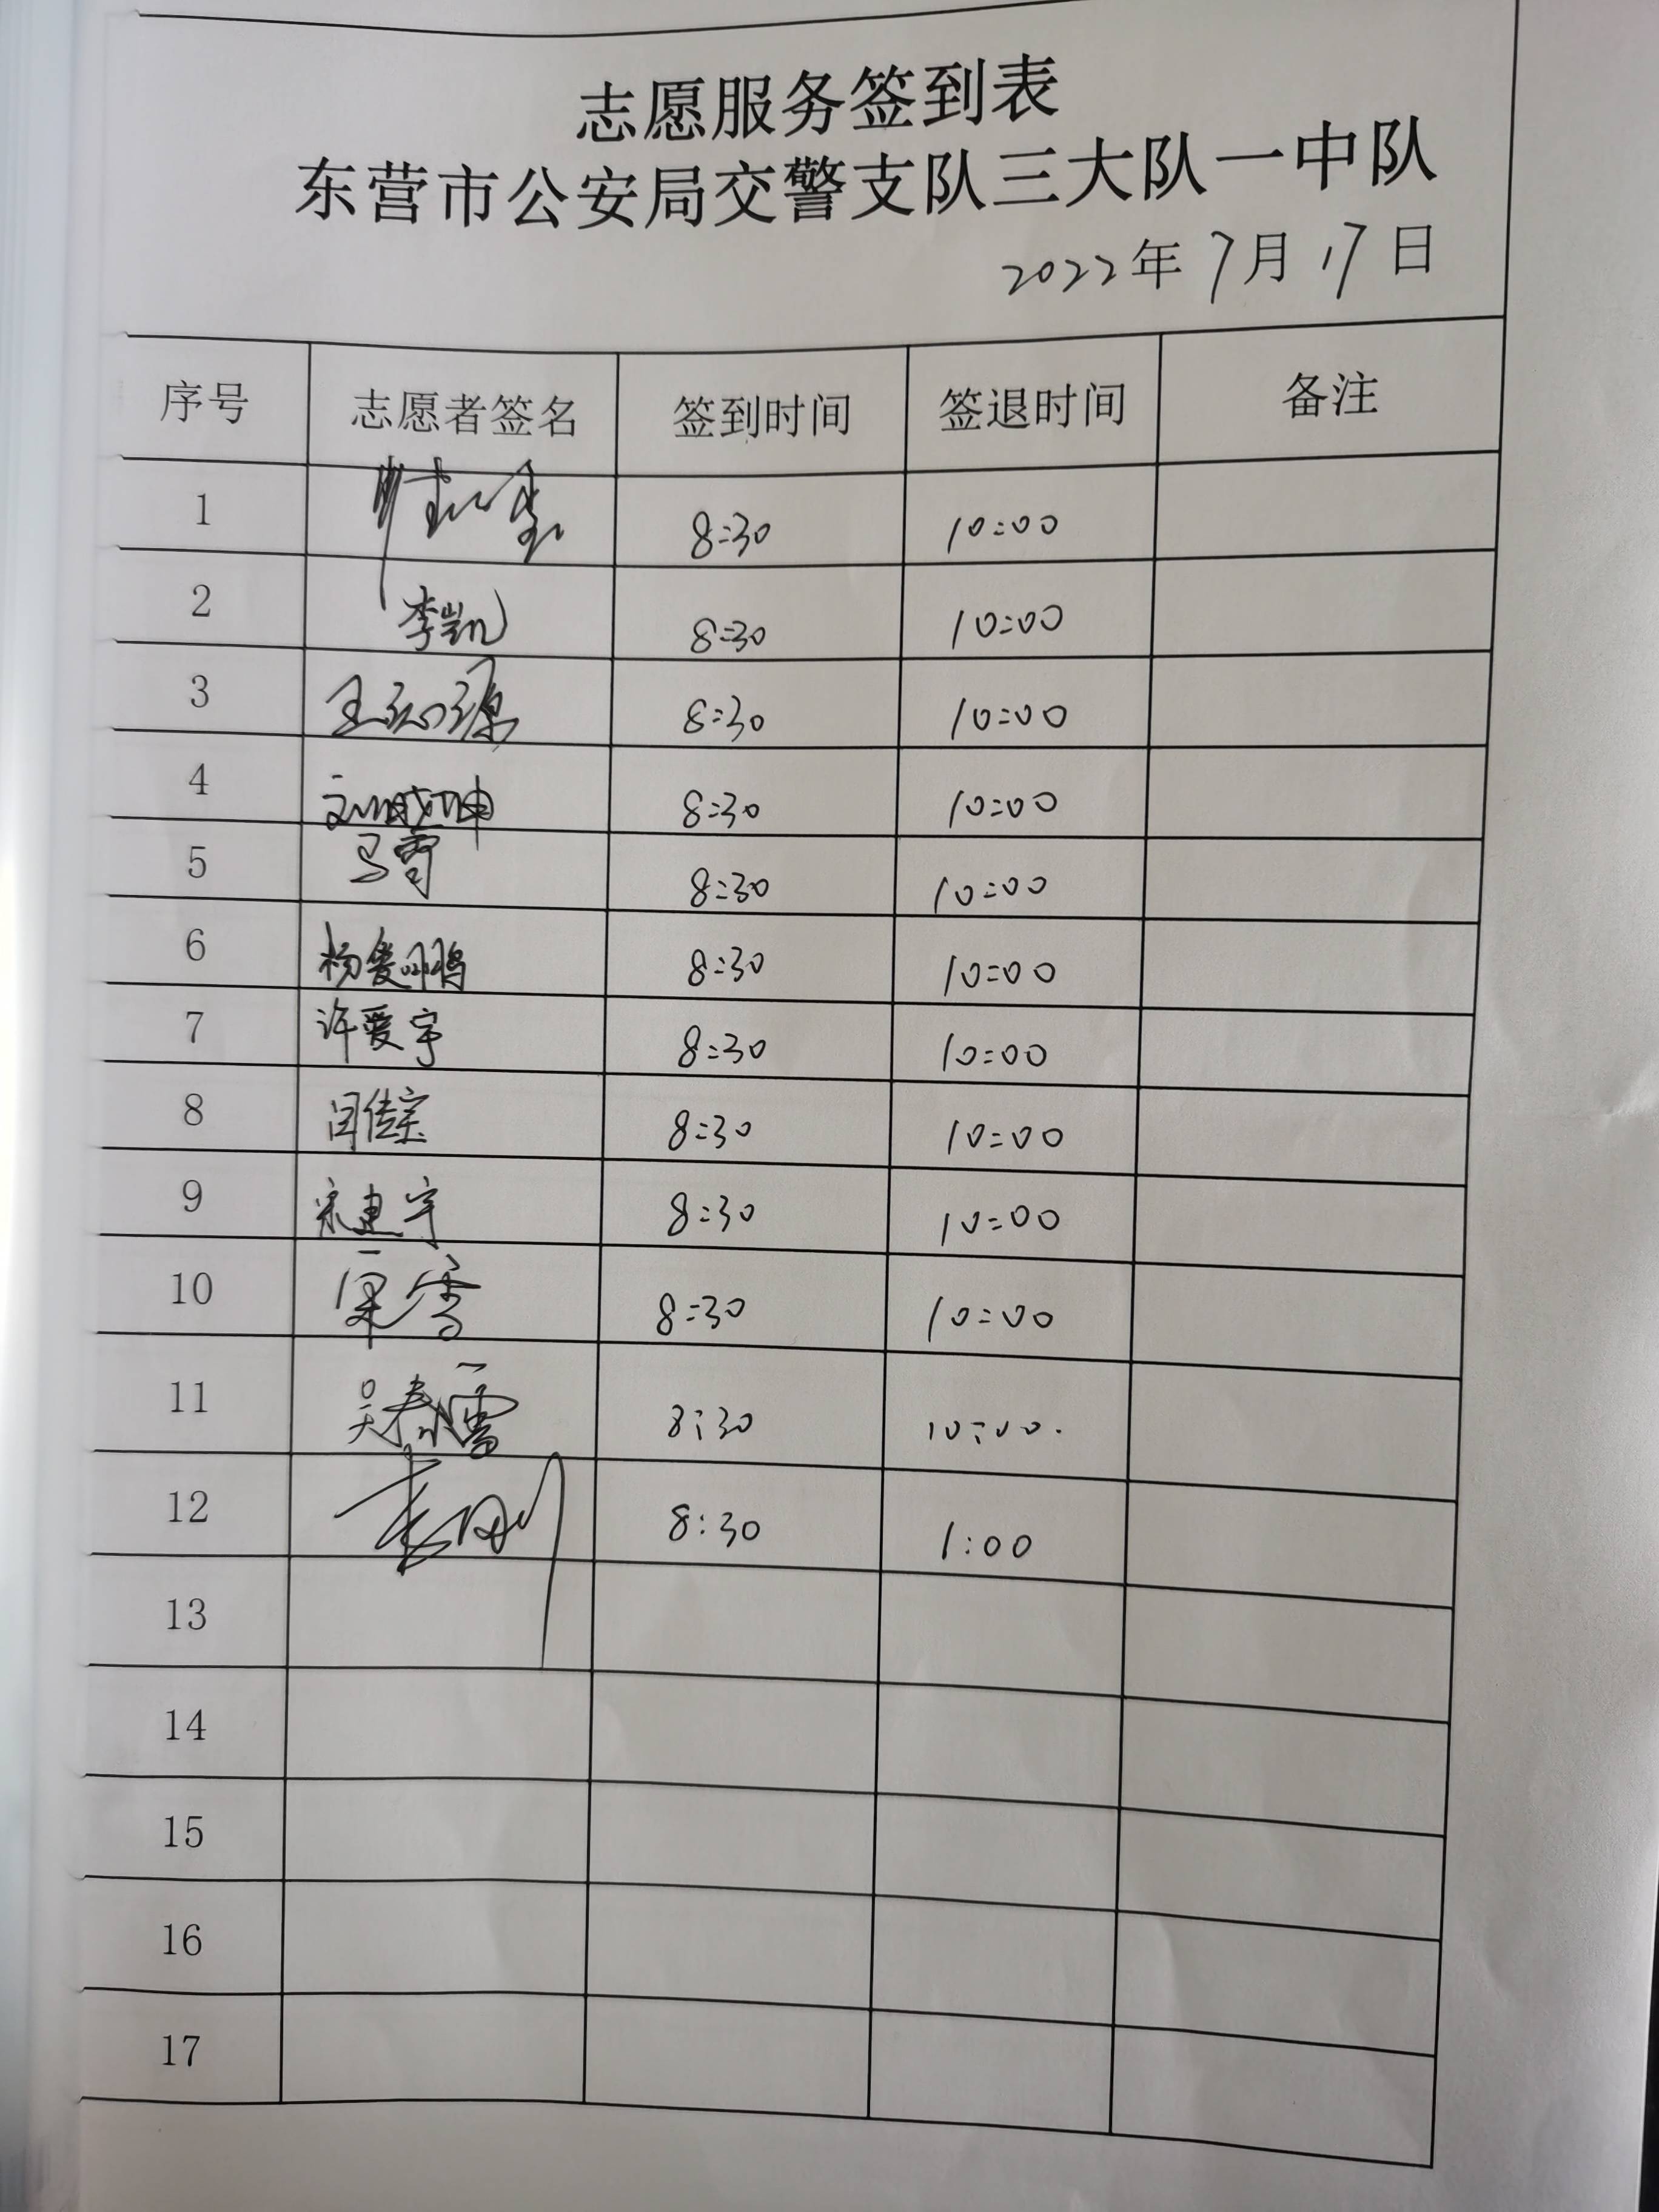 志愿服务签到表
东营市公安局交警支队三大队一中队
2022年7月17日
序号 志愿者签名 签到时间 签退时间 备注
1 8:30 10:00
2 李凯 8:30 10:00
3 王 8:30 10:00
4 8:30 10:00
5 马霄 8:30 10:00
6 杨爱鹏 8:30 10:00
7 许爱宇 8:30 10:00
8 闫传宗 8:30 10:00
9 宋建宇 8:30 10:00
10 8:30 10:00
11 吴春雷 8:30 10:00.
12 8:30 1:00
13
14
15
16
17